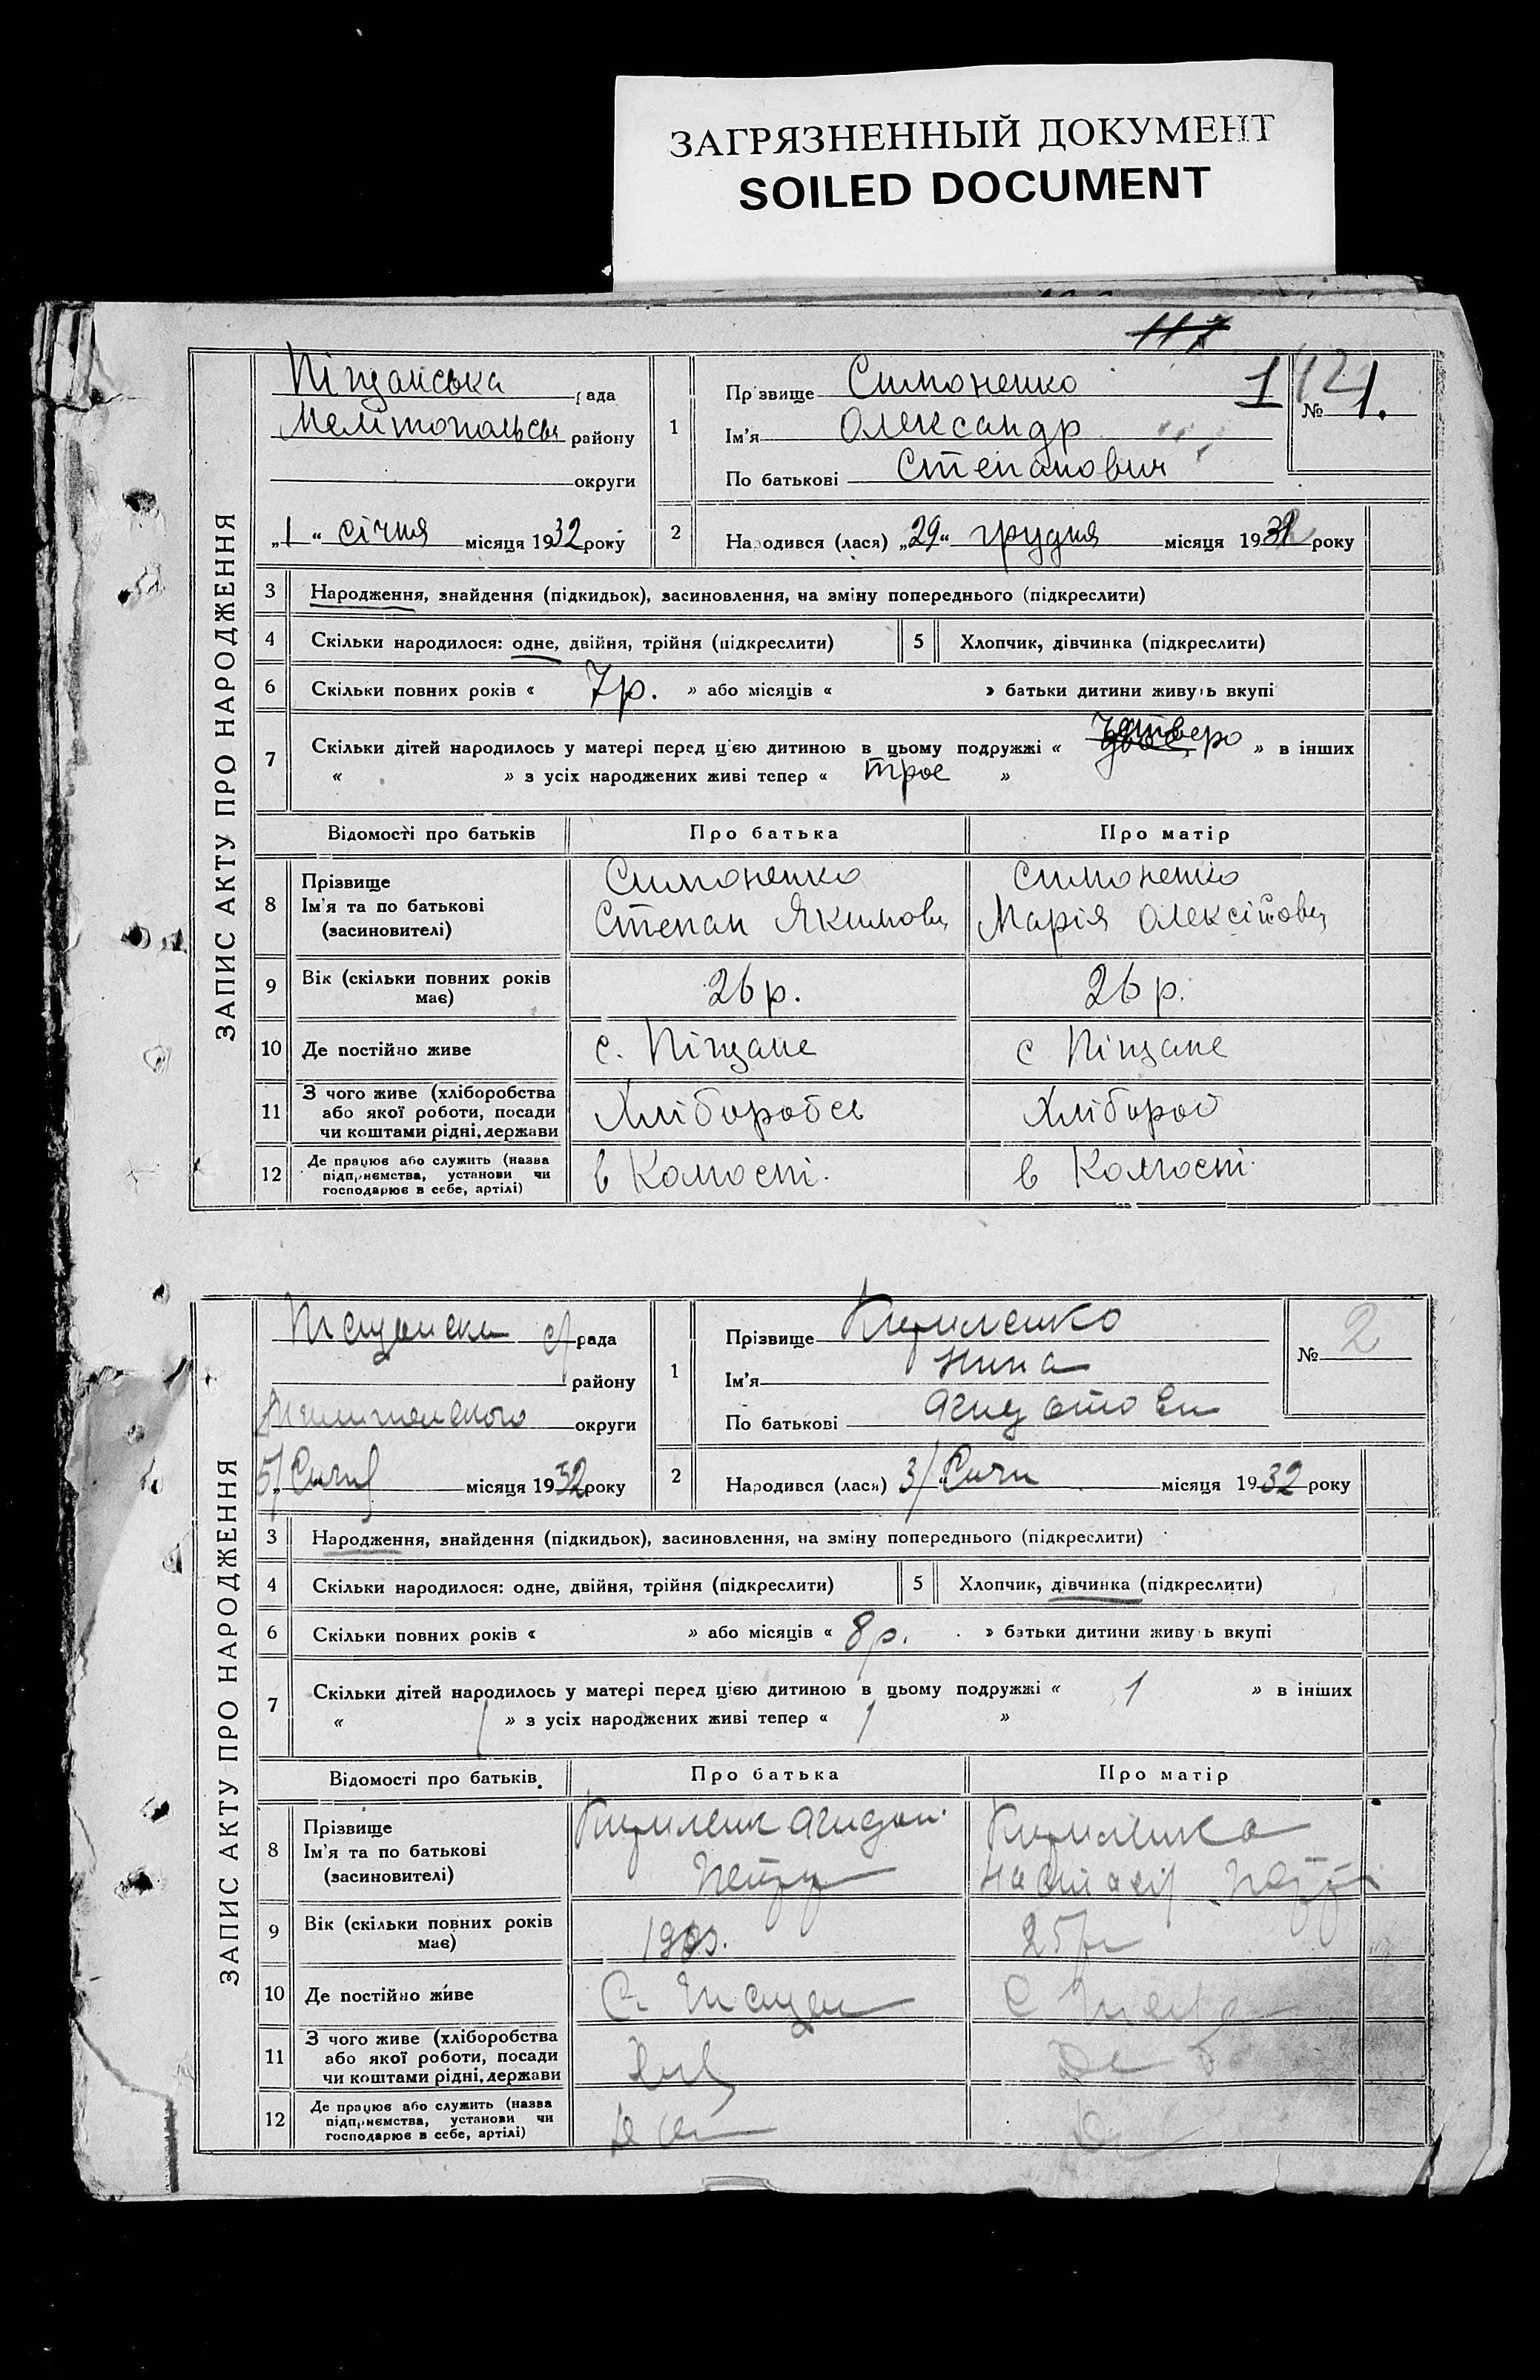 ЗАГРЯЗНЕННЫЙ ДОКУМЕНТ
SOILED DOCUMENT
117
ЗАПИС АКТУ ПРО НАРОДЖЕННЯ
Піщанська рада
Мелітопольськ району
округи
„1“ січня місяця 1932 року
1
Прізвище Симоненко
Ім'я Олександр
По батькові Степанович
1
121
№ 1.
2 Народився (лася) „29“ грудня місяця 1931 року
3 Народження, знайдення (підкидьок), засиновлення, на зміну попереднього (підкреслити)
4 Скільки народилося: одне, двійня, трійня (підкреслити) 5 Хлопчик, дівчинка (підкреслити)
6 Скільки повних років « 7р. » або місяців « » батьки дитини живуть вкупі
7 Скільки дітей народилось у матері перед цією дитиною в цьому подружжі « четверо » в інших
« » з усіх народжених живі тепер « троє »
Відомості про батьків Про батька Про матір
8 Прізвище
Ім'я та по батькові
(засиновителі)
Симоненко
Степан Якимович
Симоненко
Марія Олексіївна
9 Вік (скільки повних років має) 26 р. 26 р.
10 Де постійно живе с. Піщане с Піщане
11 З чого живе (хліборобства
або якої роботи, посади
чи коштами рідні, держави
Хлібороб Хлібороб
12 Де працює або служить (назва
підприємства, установи чи
господарює в себе, артілі)
в Колгоспі. в Колгоспі.
ЗАПИС АКТУ ПРО НАРОДЖЕННЯ
рада
району
округи
5/ місяця 1932 року
1
Прізвище Кириленко
Ім'я Нина
По батькові
№ 2
2 Народився (лася) 3/ Січн місяця 1932 року
3 Народження, знайдення (підкидьок), засиновлення, на зміну попереднього (підкреслити)
4 Скільки народилося: одне, двійня, трійня (підкреслити) 5 Хлопчик, дівчинка (підкреслити)
6 Скільки повних років « » або місяців « 8р. » батьки дитини живуть вкупі
7 Скільки дітей народилось у матері перед цією дитиною в цьому подружжі « 1 » в інших
« 1 » з усіх народжених живі тепер « 1 »
Відомості про батьків Про батька Про матір
8 Прізвище
Ім'я та по батькові
(засиновителі)
Кириленко
9 Вік (скільки повних років має) 25
10 Де постійно живе
11 З чого живе (хліборобства
або якої роботи, посади
чи коштами рідні, держави
12 Де працює або служить (назва
підприємства, установи чи
господарює в себе, артілі)